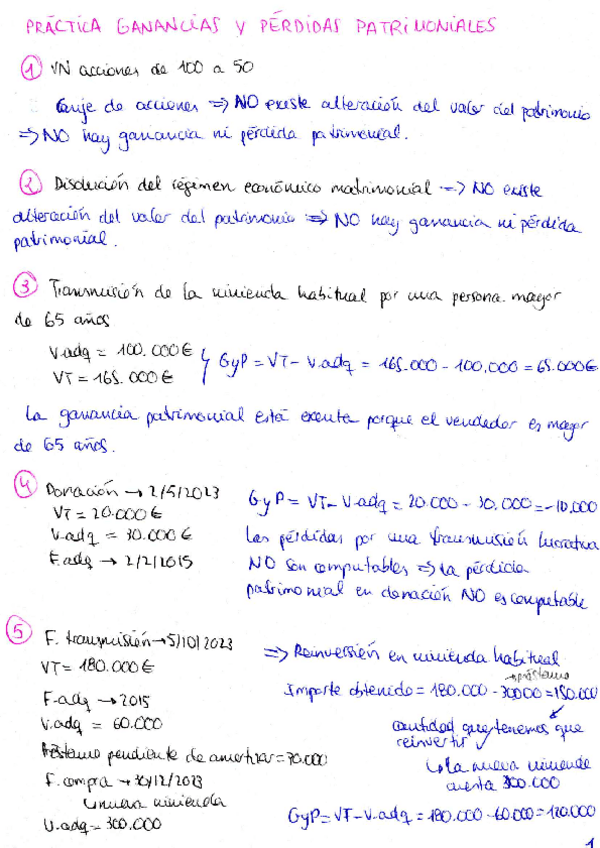 PRÁCTICA GANANCIAS Y PÉRDIDAS PATRIMONIALES
① VN acciones de 100 a 50
Canje de acciones => NO existe alteración del valor del patrimonio
=> NO hay ganancia ni pérdida patrimonial.
② Disolución del régimen económico matrimonial --> NO existe
alteración del valor del patrimonio => NO hay ganancia ni pérdida
patrimonial.
③ Transmisión de la vivienda habitual por una persona mayor
de 65 años
V.adq = 100.000€
VT = 165.000€
GyP = VT - V.adq = 165.000 - 100.000 = 65.000€
La ganancia patrimonial está exenta porque el vendedor es mayor
de 65 años.
④ Donación → 2/5/2023
VT = 20.000€
V.adq = 30.000€
F.adq → 2/2/2015
GyP = VT - V.adq = 20.000 - 30.000 = -10.000
Las pérdidas por una transmisión lucrativa
NO son computables => la pérdida
patrimonial en donación NO es computable
⑤ F. transmisión → 5/10/2023
VT = 180.000€
F.adq → 2015
V.adq = 60.000
Préstamo pendiente de amortizar = 30.000
F. compra → 30/12/2023
↳ nueva vivienda
V.adq = 300.000
=> Reinversión en vivienda habitual
→ préstamo
Importe obtenido = 180.000 - 30000 = 150.000
cantidad que tenemos que
reinvertir ✓
↳ La nueva vivienda
cuesta 300.000
GyP = VT - V.adq = 180.000 - 60.000 = 120.000
1